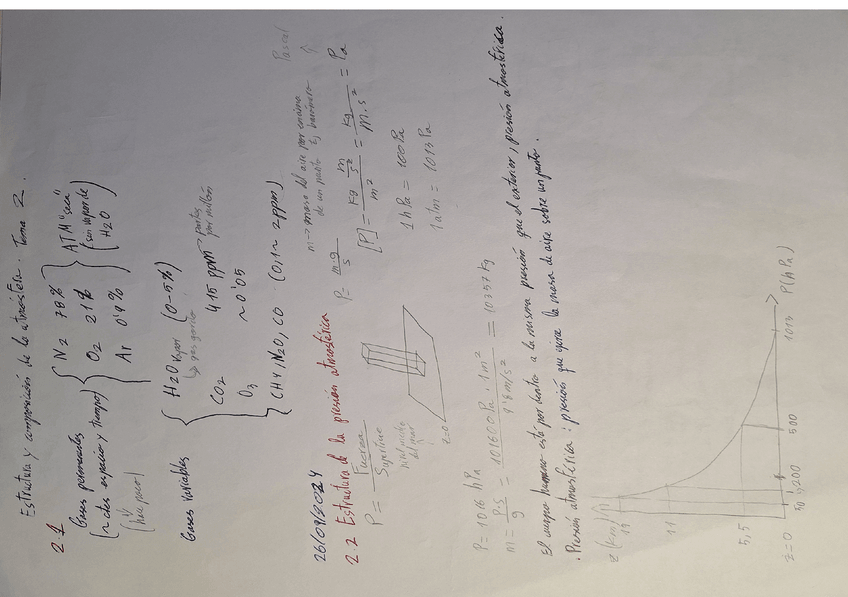 Estructura y composición de la atmósfera. Tema 2.
2.1
Gases permanentes
(~ ctes espacio y tiempo)
N2 78%
O2 21%
Ar 0'9%
ATM "seca"
(sin vapor de
H2O)
Gases variables
H2O vapor (0-5%)
CO2 415 ppm → partes
por millón
O3 ~0'05
CH4, N2O, CO (0,1 ~ 2ppm)
26/09/2024
2.2 Estructura de la presión atmosférica
P = Fuerza / Superficie
P = m·g / S
m → masa del aire por encima
de un punto
barómetro
Pascal
[P] = kg m/s² / m² = kg / m·s² = Pa
nivel medio
del mar
z=0
1 hPa = 100 Pa
1 atm = 1013 Pa
P = 1016 hPa
m = P·S / g = 101600 Pa · 1m² / 9'8 m/s² = 10357 kg
El cuerpo humano está por dentro a la misma presión que el exterior, presión atmosférica.
· Presión atmosférica: presión que ejerce la masa de aire sobre un punto.
z (km)
11
5,5
z=0
200
500
1013
P(hPa)